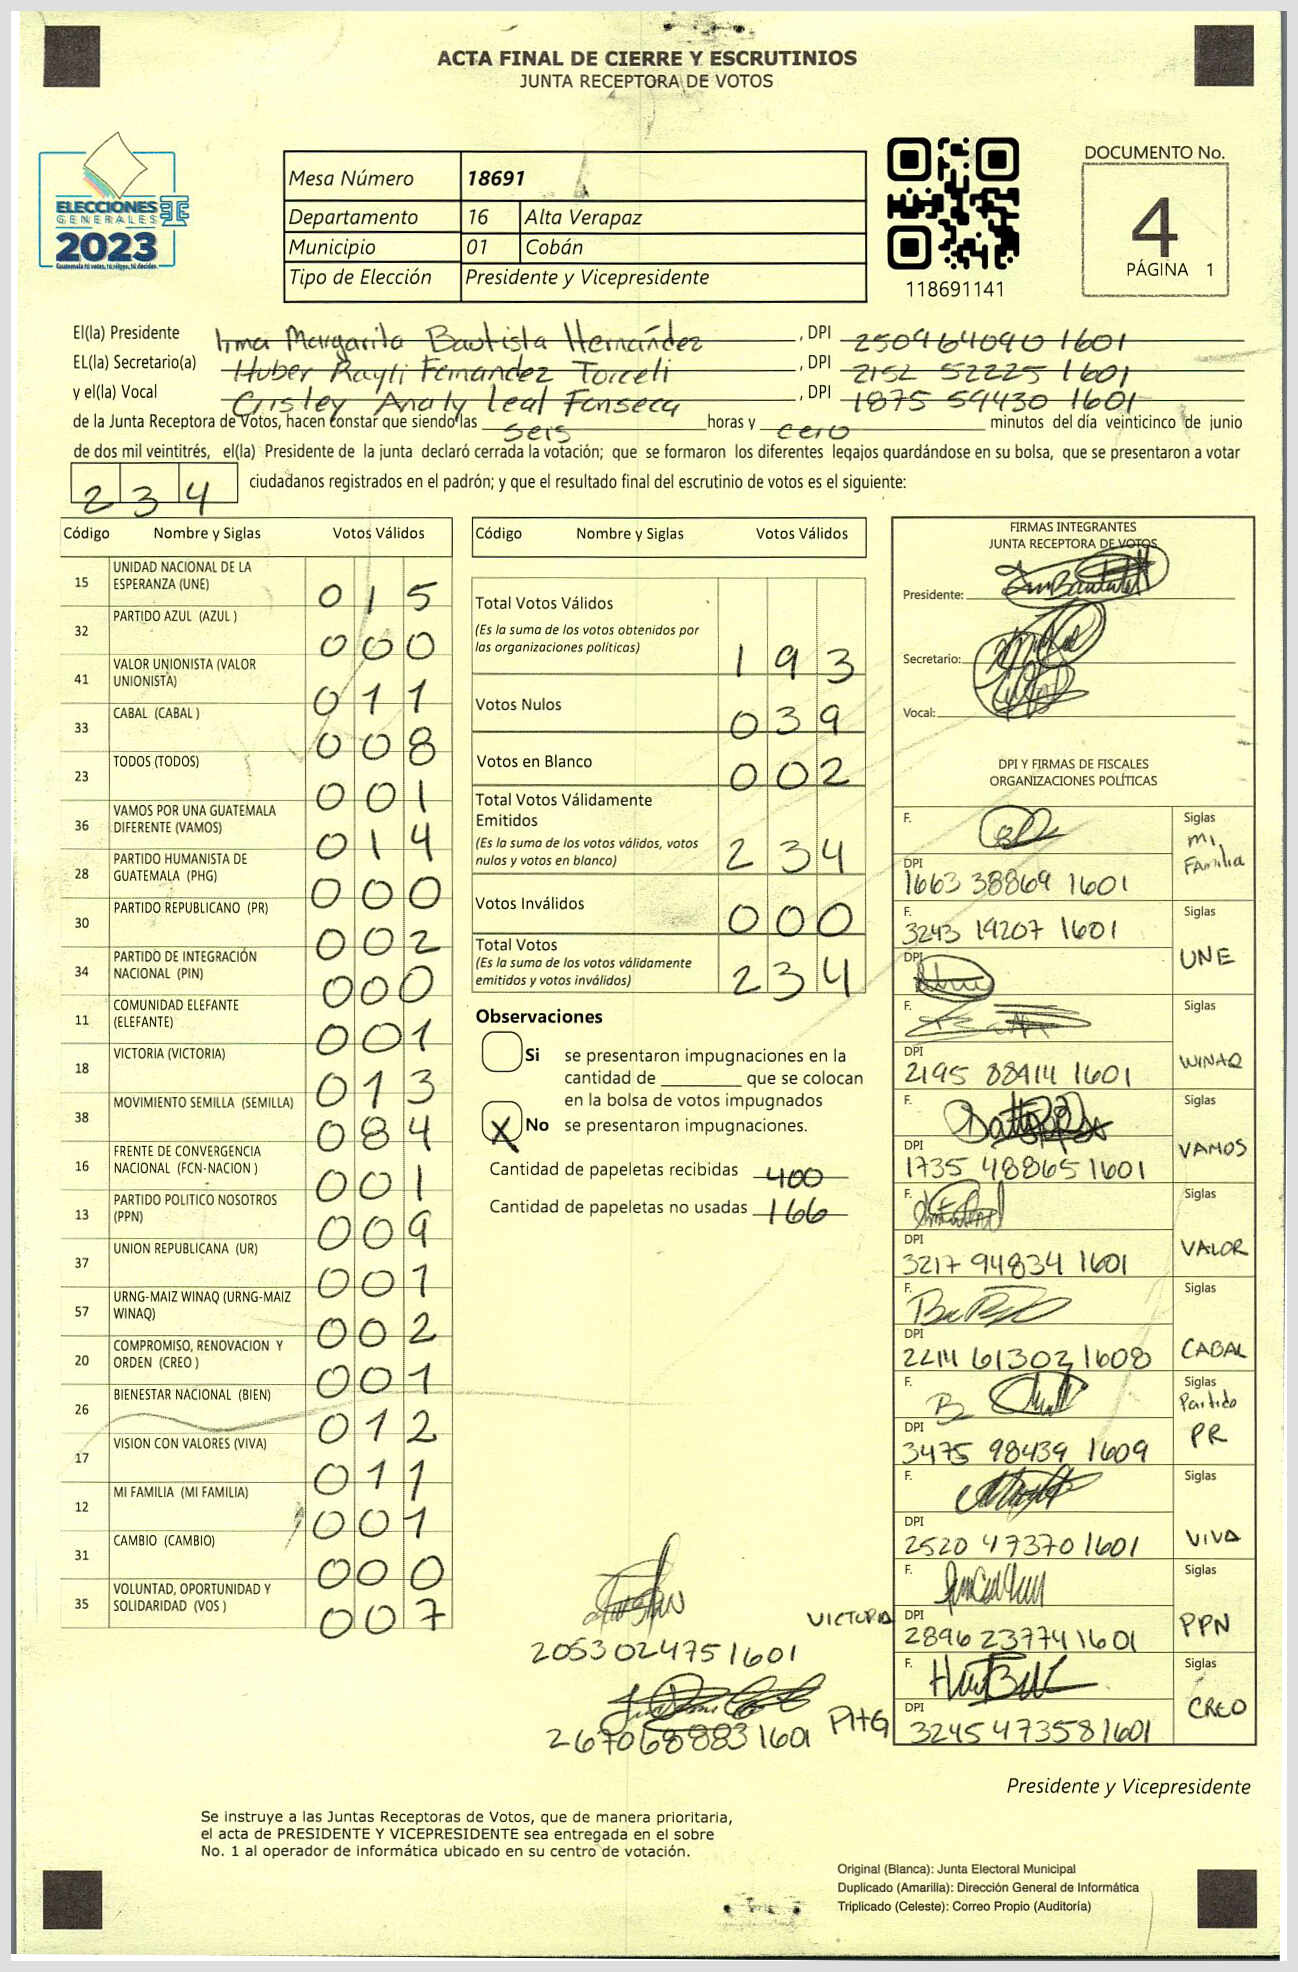 ACTA FINAL DE CIERRE Y ESCRUTINIOS
JUNTA RECEPTORA DE VOTOS
ELECCIONES
GENERALES
2023
Guatemala tú votas, tú eliges, tú decides
Mesa Número 18691
Departamento 16 Alta Verapaz
Municipio 01 Cobán
Tipo de Elección Presidente y Vicepresidente
118691141
DOCUMENTO No.
4
PÁGINA 1
El(la) Presidente Irma Margarita Bautista Hernández, DPI 250964090 1601
EL(la) Secretario(a) Huber Rayli Fernandez Torceli, DPI 2152 52225 1601
y el(la) Vocal Crisley Analy Leal Fonseca, DPI 1875 59430 1601
de la Junta Receptora de Votos, hacen constar que siendo las seis horas y cero minutos del día veinticinco de junio
de dos mil veintitrés, el(la) Presidente de la junta declaró cerrada la votación; que se formaron los diferentes legajos guardándose en su bolsa, que se presentaron a votar
234 ciudadanos registrados en el padrón; y que el resultado final del escrutinio de votos es el siguiente:
Código Nombre y Siglas Votos Válidos
15 UNIDAD NACIONAL DE LA ESPERANZA (UNE) 015
32 PARTIDO AZUL (AZUL ) 000
41 VALOR UNIONISTA (VALOR UNIONISTA) 011
33 CABAL (CABAL ) 008
23 TODOS (TODOS) 001
36 VAMOS POR UNA GUATEMALA DIFERENTE (VAMOS) 014
28 PARTIDO HUMANISTA DE GUATEMALA (PHG) 000
30 PARTIDO REPUBLICANO (PR) 002
34 PARTIDO DE INTEGRACIÓN NACIONAL (PIN) 000
11 COMUNIDAD ELEFANTE (ELEFANTE) 001
18 VICTORIA (VICTORIA) 013
38 MOVIMIENTO SEMILLA (SEMILLA) 084
16 FRENTE DE CONVERGENCIA NACIONAL (FCN-NACION ) 001
13 PARTIDO POLITICO NOSOTROS (PPN) 009
37 UNION REPUBLICANA (UR) 001
57 URNG-MAIZ WINAQ (URNG-MAIZ WINAQ) 002
20 COMPROMISO, RENOVACION Y ORDEN (CREO ) 001
26 BIENESTAR NACIONAL (BIEN) 012
17 VISION CON VALORES (VIVA) 011
12 MI FAMILIA (MI FAMILIA) 001
31 CAMBIO (CAMBIO) 000
35 VOLUNTAD, OPORTUNIDAD Y SOLIDARIDAD (VOS ) 007
Código Nombre y Siglas Votos Válidos
Total Votos Válidos 193
(Es la suma de los votos obtenidos por
las organizaciones políticas)
Votos Nulos 039
Votos en Blanco 002
Total Votos Válidamente
Emitidos 234
(Es la suma de los votos válidos, votos
nulos y votos en blanco)
Votos Inválidos 000
Total Votos 234
(Es la suma de los votos válidamente
emitidos y votos inválidos)
Observaciones
Si se presentaron impugnaciones en la
cantidad de ________ que se colocan
en la bolsa de votos impugnados
X No se presentaron impugnaciones.
Cantidad de papeletas recibidas 400
Cantidad de papeletas no usadas 166
VICTORIA
2053024751601
PHG
2670688831601
FIRMAS INTEGRANTES
JUNTA RECEPTORA DE VOTOS
Presidente:
Secretario:
Vocal:
DPI Y FIRMAS DE FISCALES
ORGANIZACIONES POLÍTICAS
F. Siglas Mi Familia
DPI 1663 38869 1601
F. 3243 19207 1601 Siglas UNE
DPI
F. Siglas WINAQ
DPI 2195 88414 1601
F. Siglas VAMOS
DPI 1735 48865 1601
F. Siglas VALOR
DPI 3217 94834 1601
F. Siglas CABAL
DPI 2214 61302 1608
F. Siglas Partido PR
DPI 3475 98439 1609
F. Siglas VIVA
DPI 2520 47370 1601
F. Siglas PPN
DPI 2896 23774 1601
F. Siglas CREO
DPI 3245 47358 1601
Presidente y Vicepresidente
Se instruye a las Juntas Receptoras de Votos, que de manera prioritaria,
el acta de PRESIDENTE Y VICEPRESIDENTE sea entregada en el sobre
No. 1 al operador de informática ubicado en su centro de votación.
Original (Blanca): Junta Electoral Municipal
Duplicado (Amarilla): Dirección General de Informática
Triplicado (Celeste): Correo Propio (Auditoría)